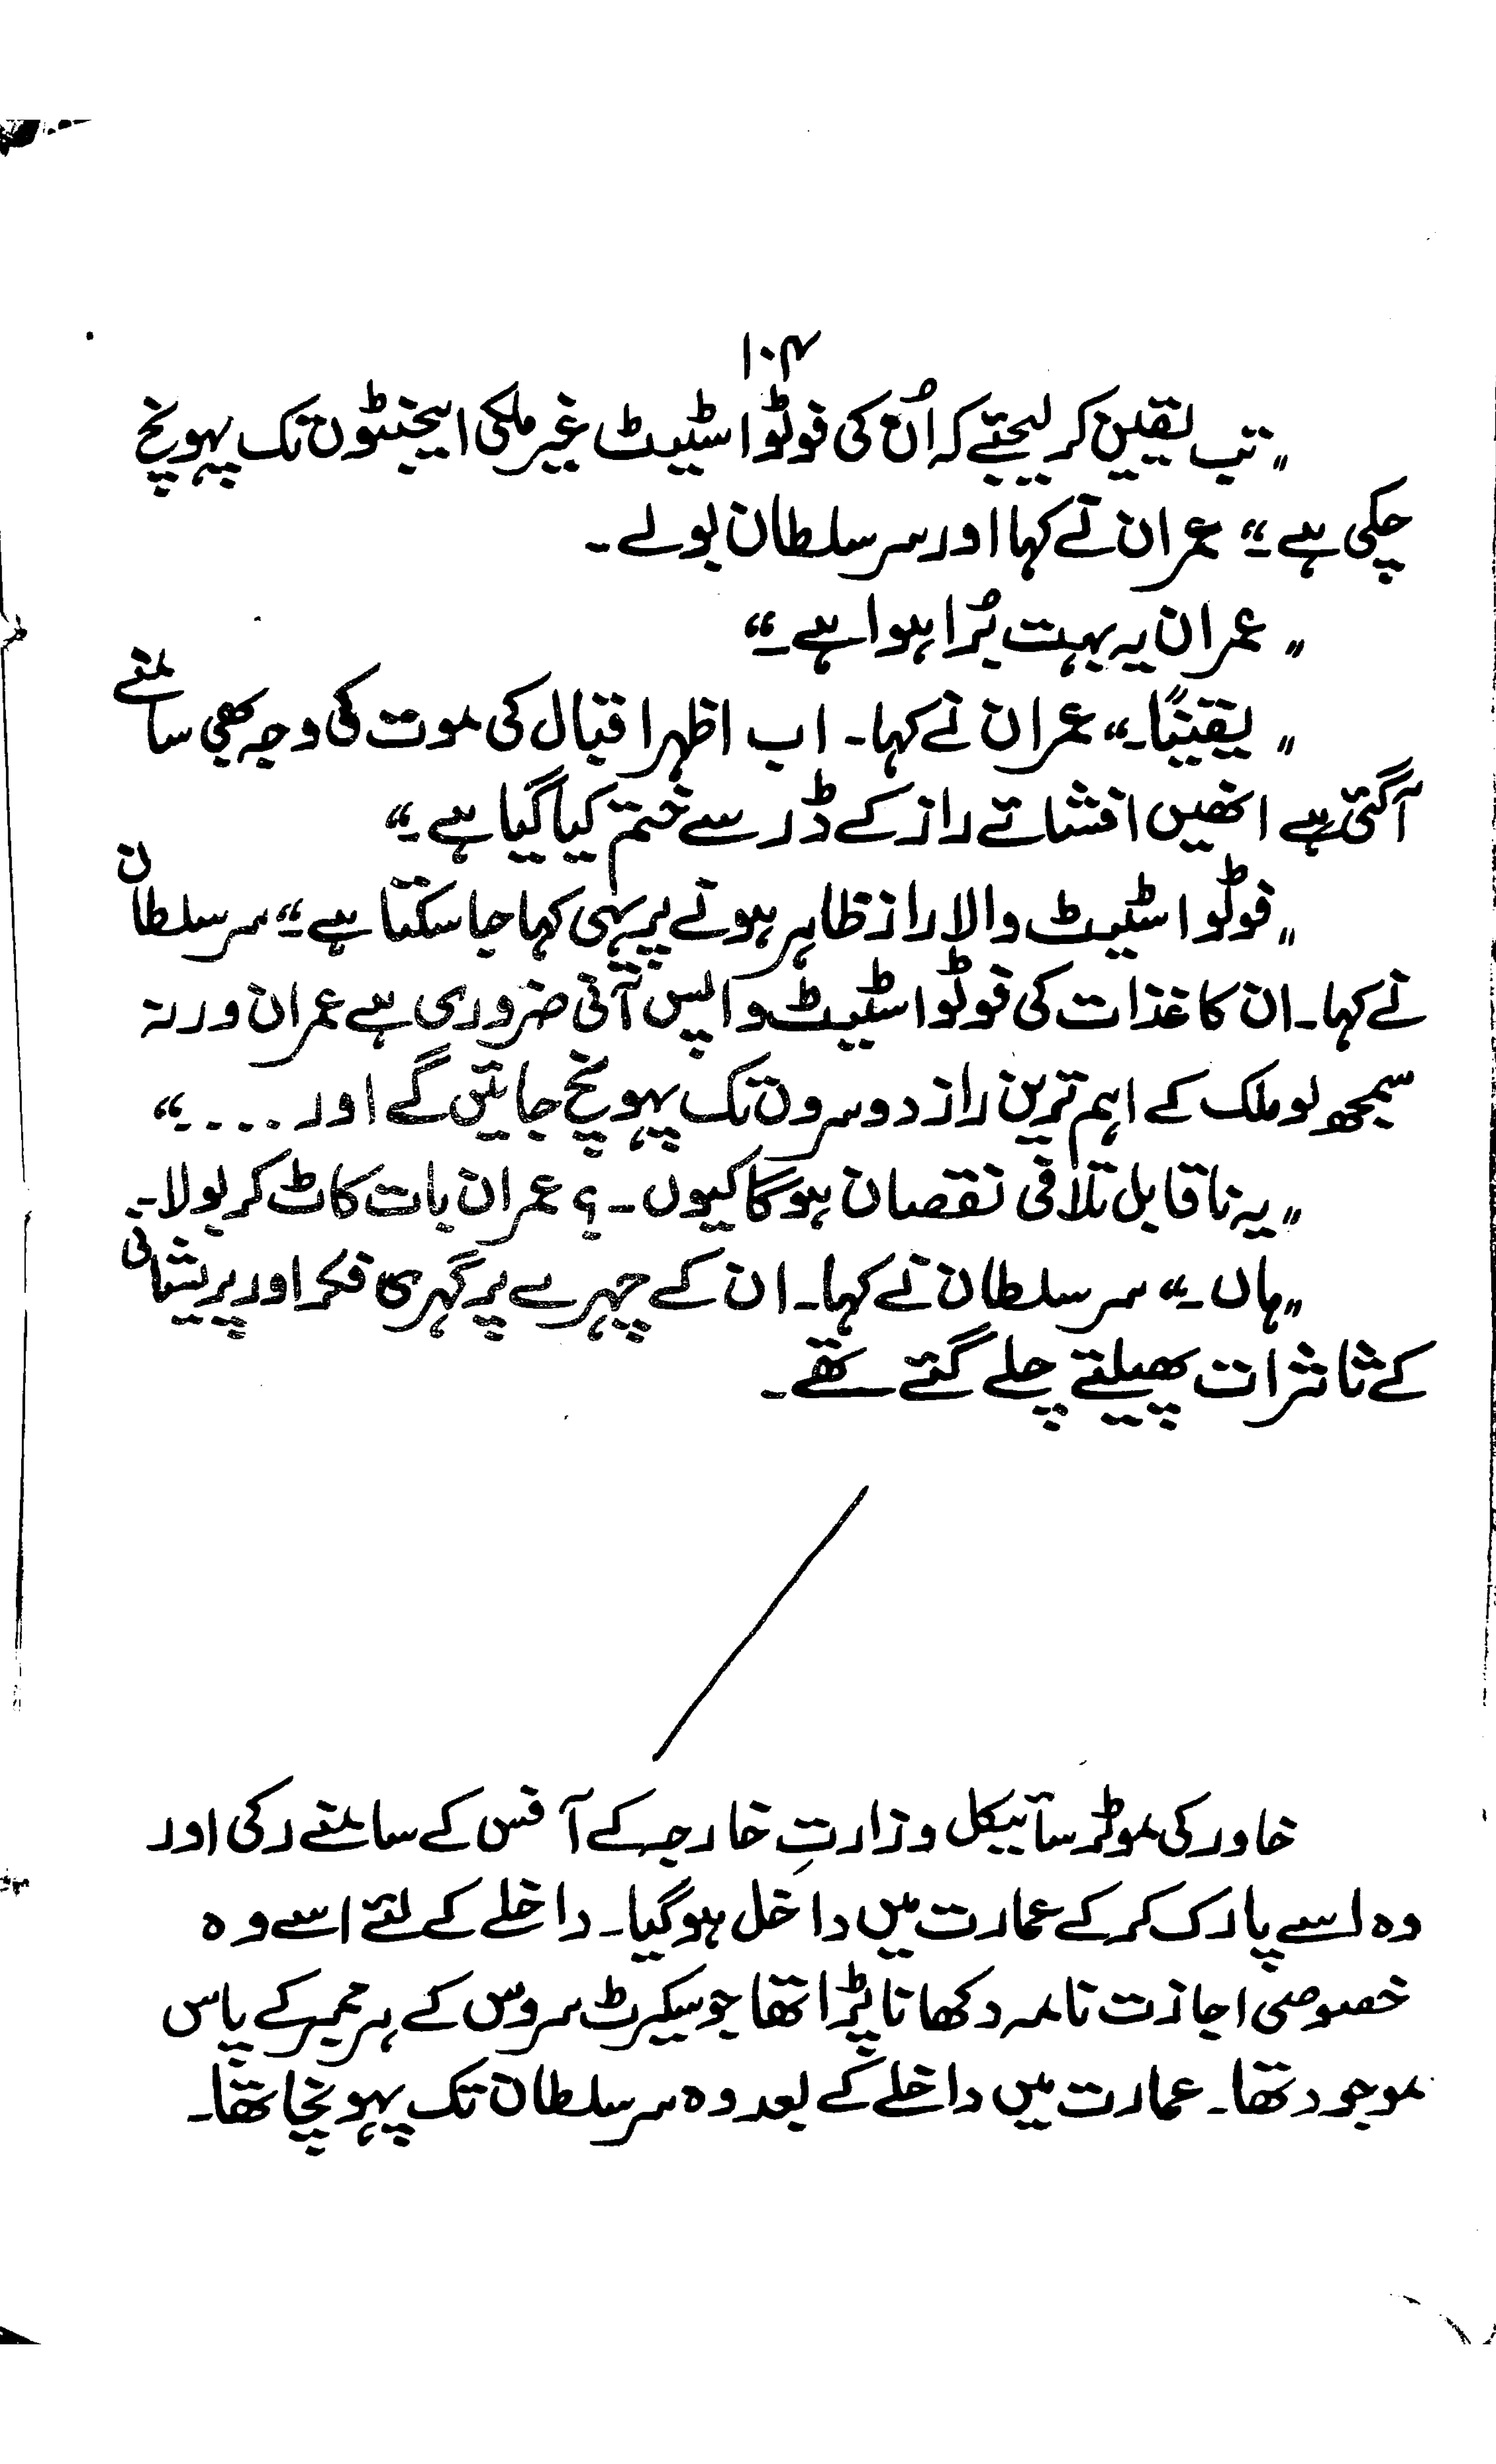 ۱۰۴
„ تب یقین کر لیجئے کہ اُن کی فوٹو اسٹیٹ غیر ملکی ایجنٹوں تک پہونچ
چکی ہے ۔“ عمران نے کہا اور سر سلطان بولے ۔
„ عمران یہ بہت بُرا ہوا ہے ۔“
„ یقیناً ۔“ عمران نے کہا ۔ اب اظہر اقبال کی موت کی وجہ بھی سامنے
آگئی ہے انھیں افشائے راز کے ڈر سے ختم کیا گیا ہے ۔“
„ فوٹو اسٹیٹ والا راز ظاہر ہونے پر یہی کہا جا سکتا ہے ۔“ سر سلطان
نے کہا ۔ ان کاغذات کی فوٹو اسٹیٹ واپس آنی ضروری ہے عمران ورنہ
سمجھ لو ملک کے اہم ترین راز دوسروں تک پہونچ جائیں گے اور . . . . ۔“
„ یہ ناقابل تلافی نقصان ہوگا کیوں ۔ ؟ عمران بات کاٹ کر بولا ۔
„ ہاں ۔“ سر سلطان نے کہا ۔ ان کے چہرے پر گہری فکر اور پریشانی
کے تاثرات پھیلتے چلے گئے تھے ۔
خاور کی موٹر سائیکل وزارتِ خارجہ کے آفس کے سامنے رکی اور
وہ اسے پارک کر کے عمارت میں داخل ہوگیا ۔ داخلے کے لئے اسے وہ
خصوصی اجازت نامہ دکھانا پڑا تھا جو سیکرٹ سروس کے ہر ممبر کے پاس
موجود تھا ۔ عمارت میں داخلے کے بعد وہ سر سلطان تک پہونچا تھا ۔